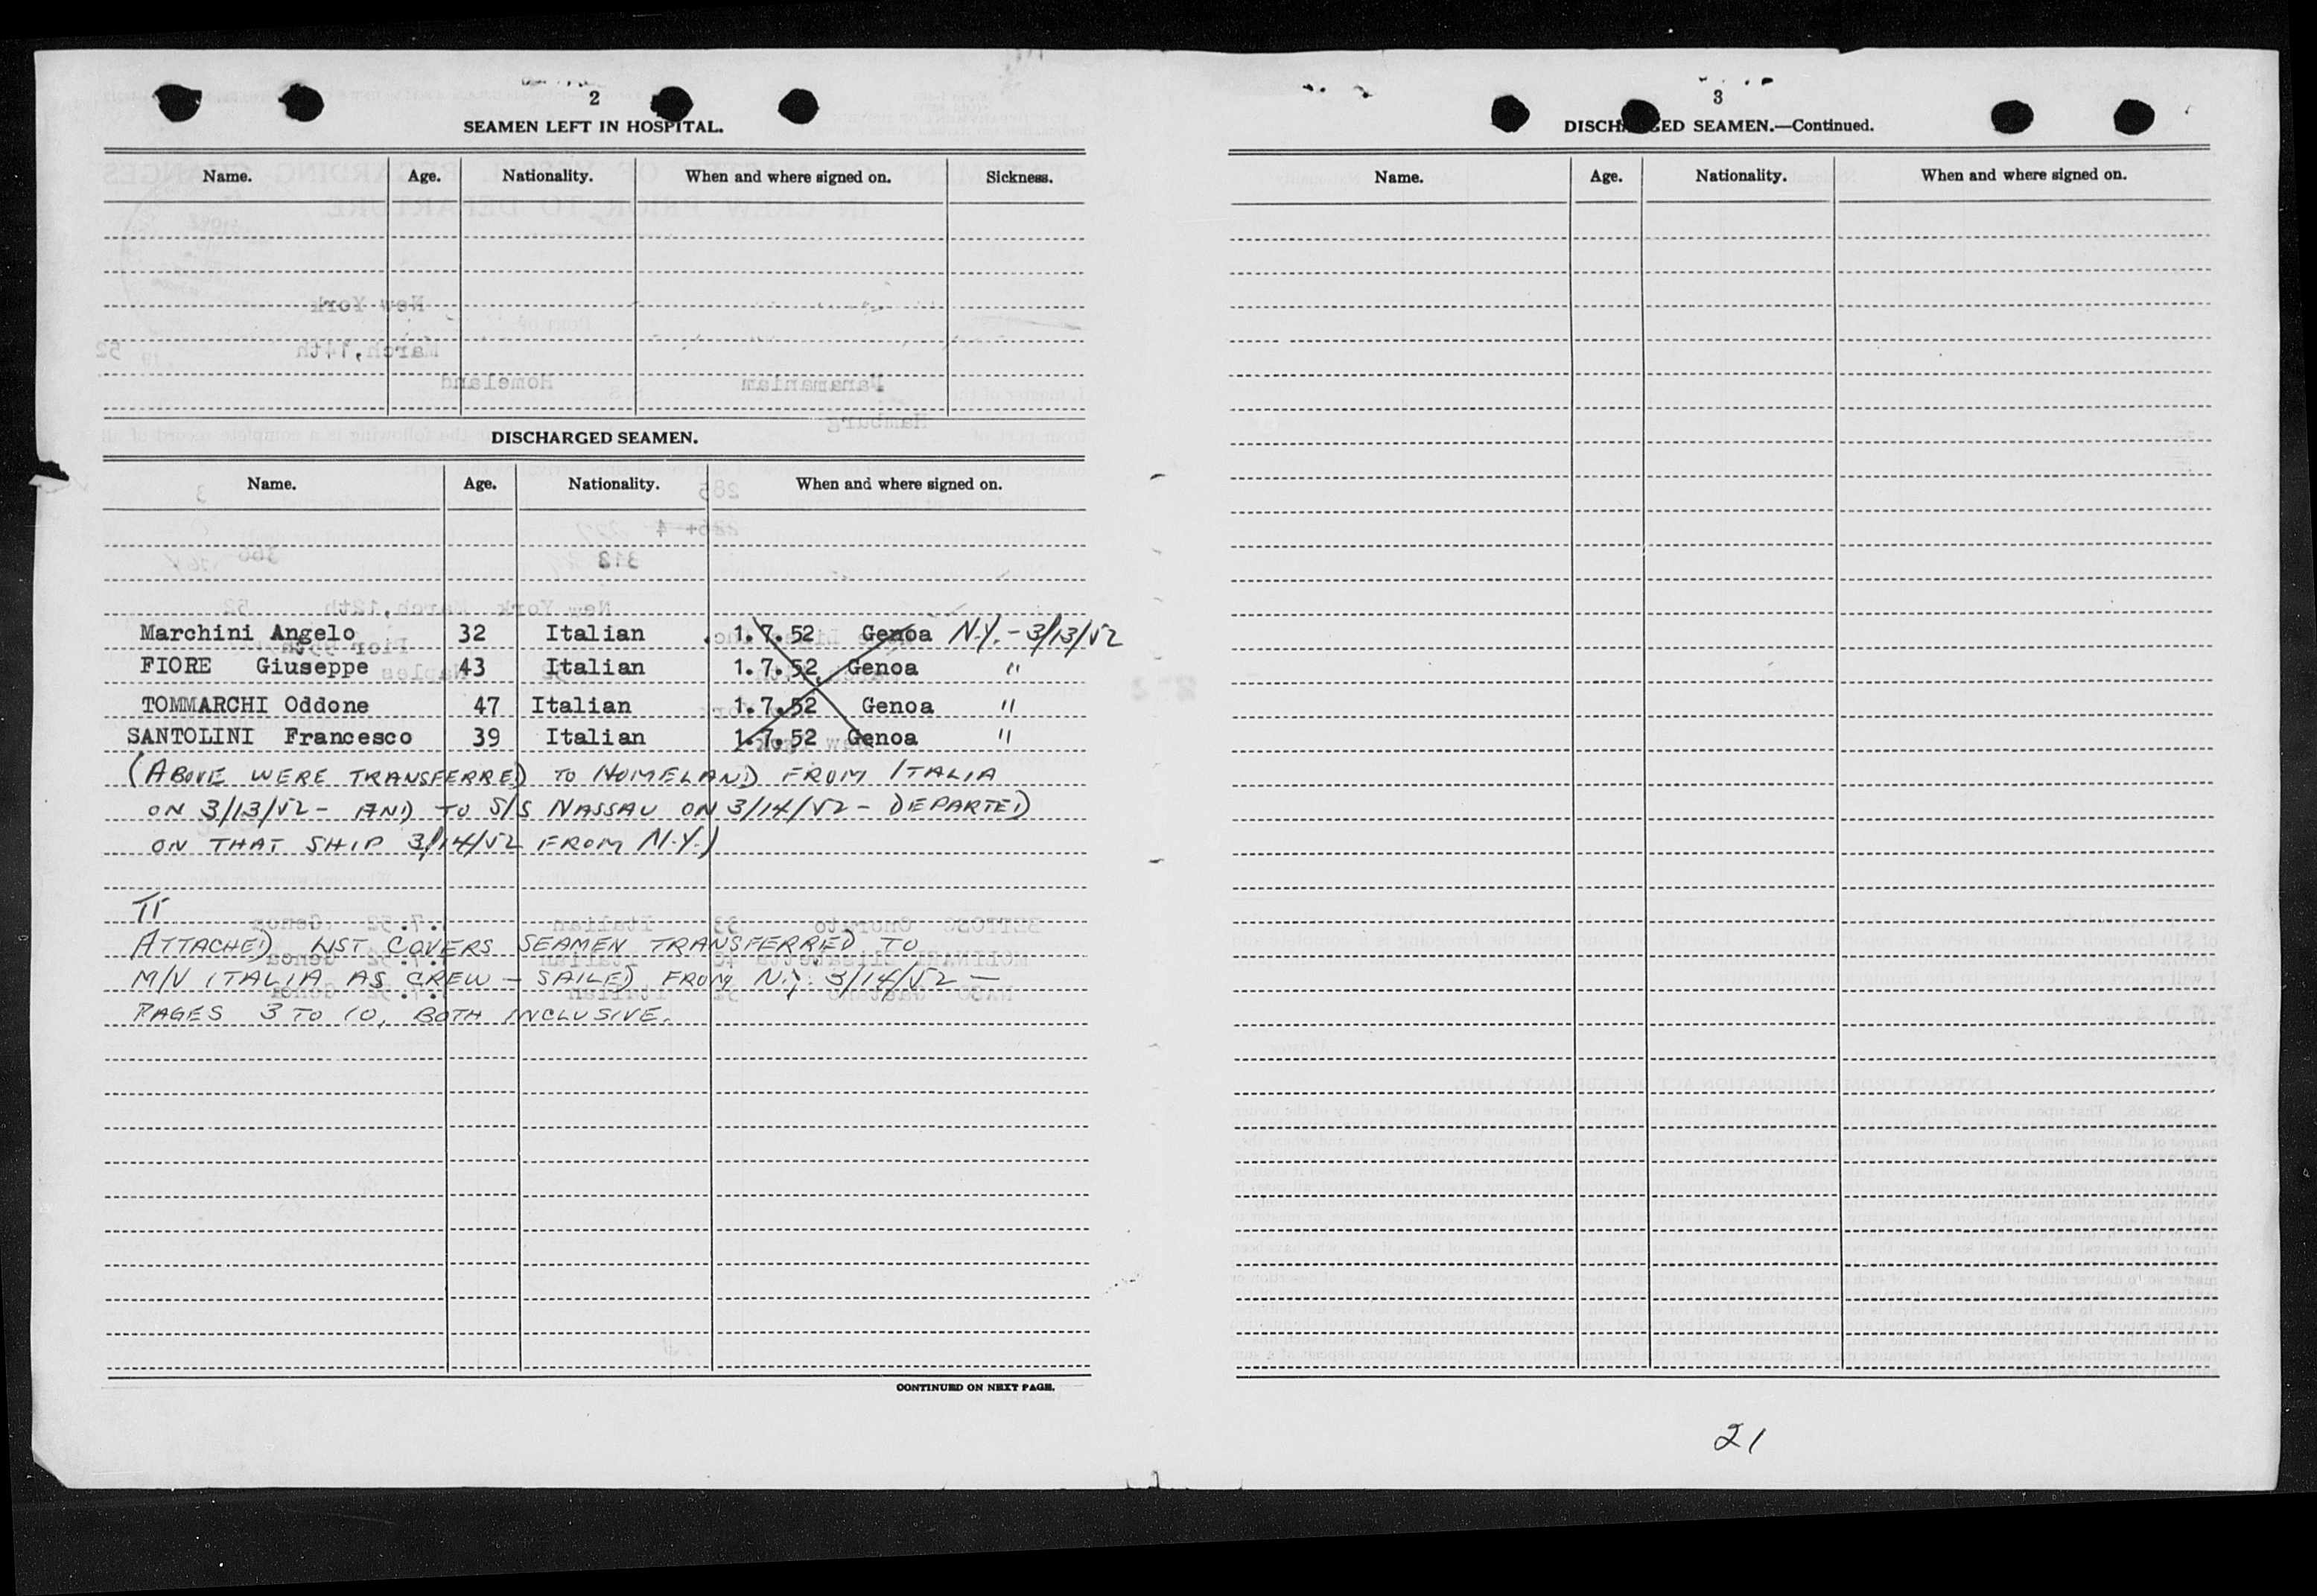 2
SEAMEN LEFT IN HOSPITAL.
Name. Age. Nationality. When and where signed on. Sickness.
DISCHARGED SEAMEN.
Name. Age. Nationality. When and where signed on.
Marchini Angelo 32 Italian 1.7.52 Genoa N.Y. - 3/13/52
FIORE Giuseppe 43 Italian 1.7.52 Genoa "
TOMMARCHI Oddone 47 Italian 1.7.52 Genoa "
SANTOLINI Francesco 39 Italian 1.7.52 Genoa "
(ABOVE WERE TRANSFERRED TO HOMELAND FROM ITALIA
ON 3/13/52 - AND TO S/S NASSAU ON 3/14/52 - DEPARTED
ON THAT SHIP 3/14/52 FROM N.Y.)
ATTACHED LIST COVERS SEAMEN TRANSFERRED TO
M/V ITALIA AS CREW - SAILED FROM N.Y. 3/14/52 -
PAGES 3 TO 10, BOTH INCLUSIVE.
CONTINUED ON NEXT PAGE.
3
DISCHARGED SEAMEN.—Continued.
Name. Age. Nationality. When and where signed on.
21